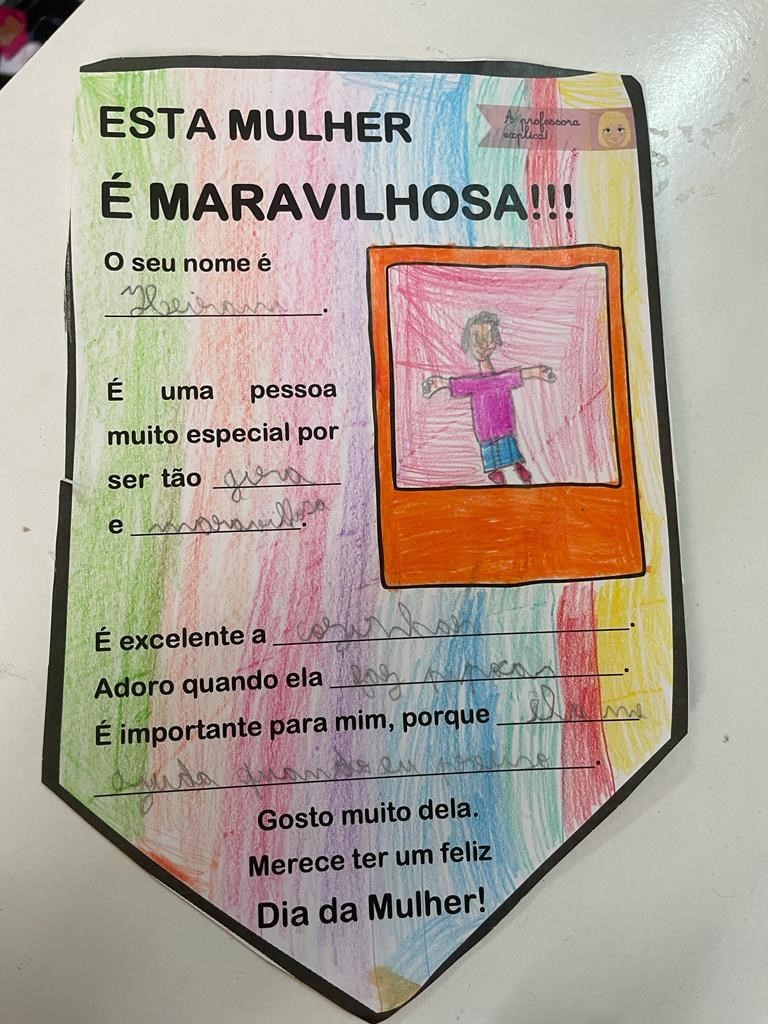 ESTA MULHER
A professora
explica!
É MARAVILHOSA!!!
O seu nome é
.
É uma pessoa
muito especial por
ser tão gira
e maravilhosa.
É excelente a cozinhar.
Adoro quando ela faz.
É importante para mim, porque ela me
ajuda quando eu.
Gosto muito dela.
Merece ter um feliz
Dia da Mulher!